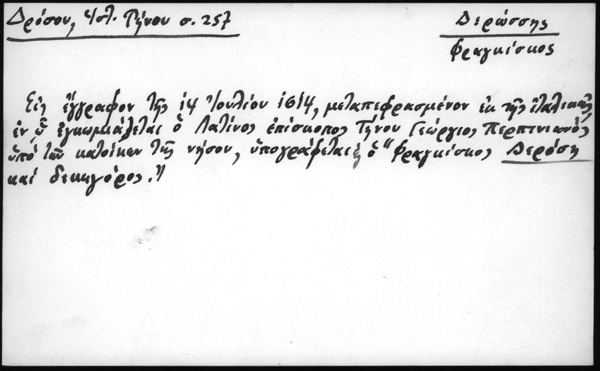 Δρόσου, Ἱστ. Τήνου σ. 257
Δερώσσης
Φραγκίσκος
Εἰς ἔγγραφον τῆς 14 Ἰουλίου 1614, μεταπεφρασμένον ἐκ τῆς ἰταλικῆς
ἐν ᾧ ἐγκωμιάζεται ὁ Λατῖνος ἐπίσκοπος Τήνου Γεώργιος Περπινιανός
ὑπό τῶν κατοίκων τῆς νήσου, ὑπογράφεται ὁ "Φραγκίσκος Δερόση
καί δικηγόρος."